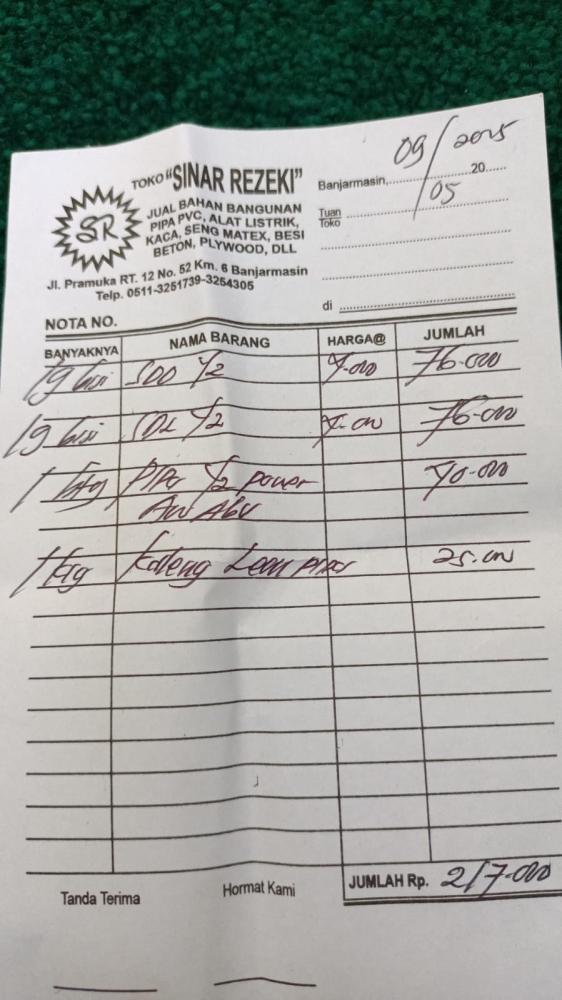 TOKO "SINAR REZEKI"
SR
JUAL BAHAN BANGUNAN
PIPA PVC, ALAT LISTRIK,
KACA, SENG MATEX, BESI
BETON, PLYWOOD, DLL
Jl. Pramuka RT. 12 No. 52 Km. 6 Banjarmasin
Telp. 0511-3251739-3254305
Banjarmasin, 09/05 20 2025
Tuan
Toko
di
NOTA NO.
BANYAKNYA NAMA BARANG HARGA@ JUMLAH
19 biji SDD 1/2 4.000 76.000
19 biji SDL 1/2 4.000 76.000
1 btg Pipa 1/2 power 40.000
AW Abu
1 klg Kaleng Lem pipa 25.000
JUMLAH Rp. 217.000
Tanda Terima Hormat Kami